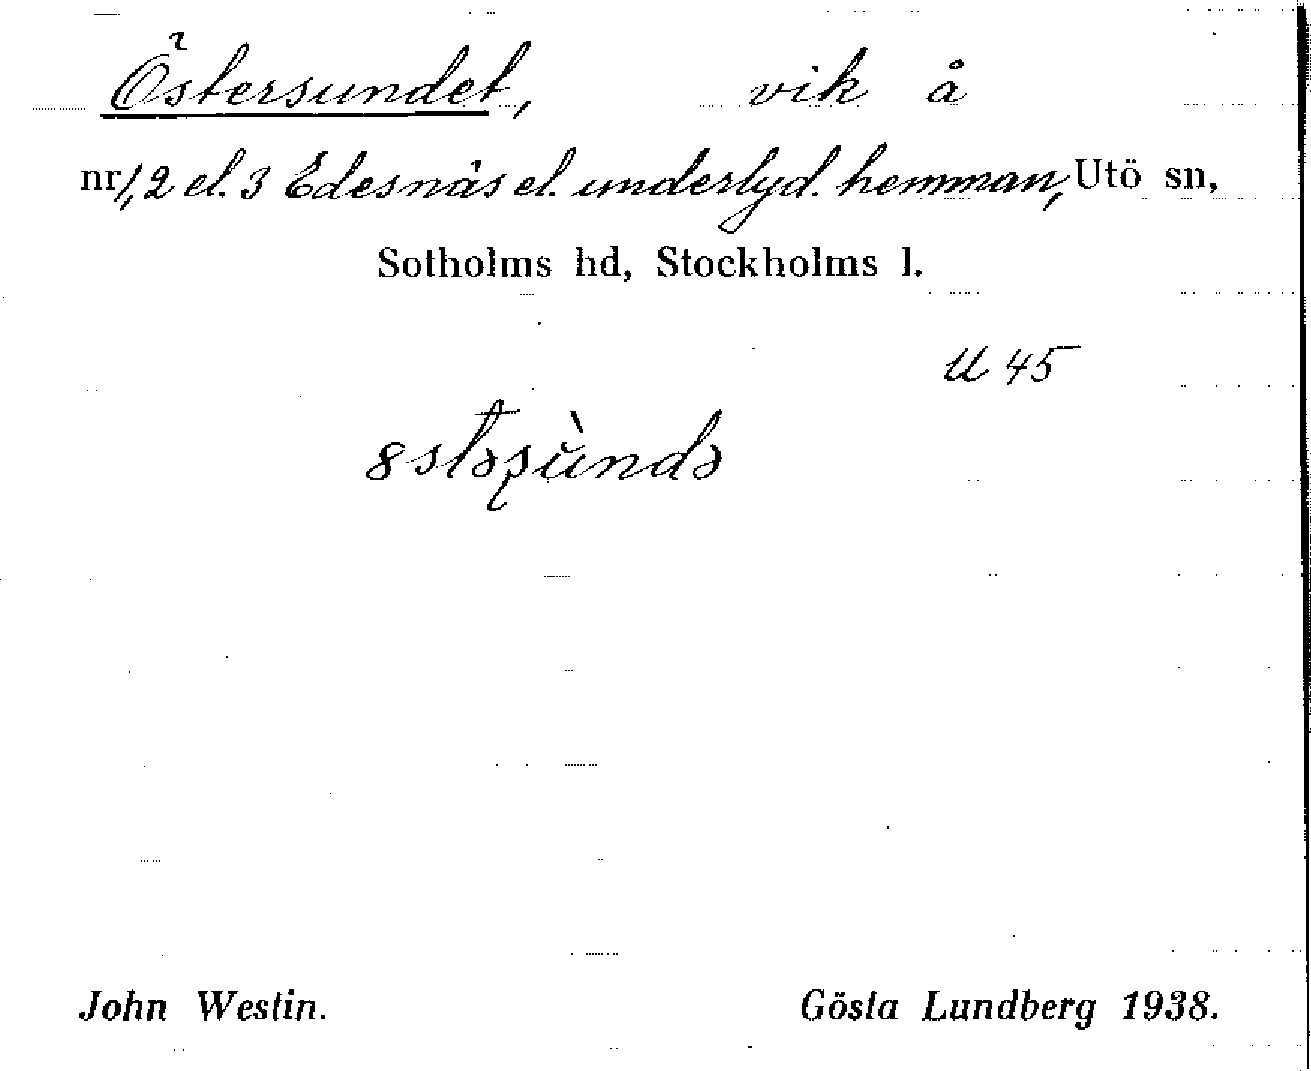 Östersundet, vik å
nr 1, 2 el. 3 Edesnäs el. underlyd. hemman, Utö sn,
Sotholms hd, Stockholms l.
U 45
John Westin. Gösta Lundberg 1938.